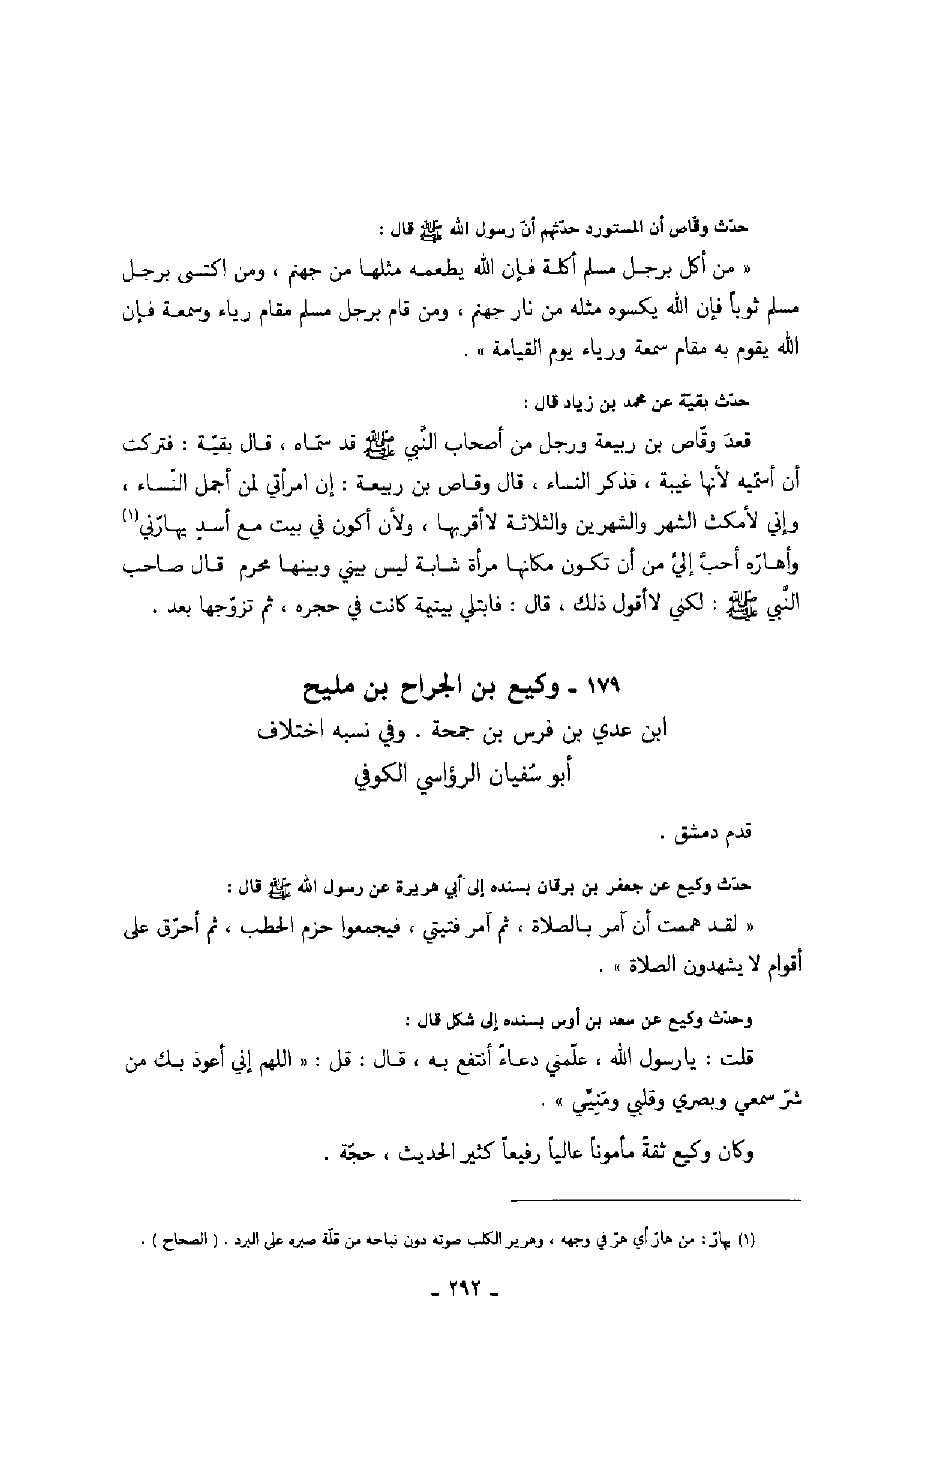 حدّث وقّاص أن المستورد حدّثهم أنّ رسول الله ﷺ قال :
« من أكل برجـل مسلم أكلـة فـإن الله يطعمـه مثلهـا من جهنم ، ومن اكتسى برجـل
مسلم ثوباً فإن الله يكسوه مثله من نار جهنم ، ومن قام برجل مسلم مقام رياء وسمعـة فـإن
الله يقوم به مقام سمعة ورياء يوم القيامة » .
حدّث بقيّة عن محمد بن زياد قال :
قعدَ وقّاص بن ربيعة ورجل من أصحاب النَّبي ﷺ قد سمّاه ، قـال بقيّـة : فتركت
أن أسمّيه لأنها غيبة ، فذكر النساء ، قال وقـاص بن ربيعـة : إن امرأتي لمن أجمل النّسـاء ،
وإني لأمكث الشهر والشهرين والثلاثـة لاأقربهـا ، ولأن أكون في بيت مـع أسدٍ يهـارّني(١)
وأهـارّه أحبَّ إليَّ من أن تكـون مكانهـا مرأة شـابـة ليس بيني وبينهـا محرم قـال صـاحب
النَّبي ﷺ : لكني لاأقول ذلك ، قال : فابتلي بيتيمة كانت في حجره ، ثم تزوّجها بعد .
١٧٩ ـ وكيع بن الجراح بن مليح
ابن عدي بن فرس بن جمحة . وفي نسبه اختلاف
أبو سُفيان الرؤاسي الكوفي
قدم دمشق .
حدّث وكيع عن جعفر بن برقان بسنده إلى أبي هريرة عن رسول الله ﷺ قال :
« لقـد هممت أن آمر بـالصلاة ، ثم آمر فتيتي ، فيجمعوا حزم الحطب ، ثم أحرّق على
أقوام لا يشهدون الصلاة » .
وحدّث وكيع عن سعد بن أوس بسنده إلى شكل قال :
قلت : يارسول الله ، علّمني دعـاءً أنتفع بـه ، قـال : قل : « اللهم إني أعوذ بـك من
شرّ سمعي وبصري وقلبي ومَنِيّي » .
وكان وكيع ثقةً مأموناً عالياً رفيعاً كثير الحديث ، حجّة .
(١) يهارّ : من هارّ أي هرّ في وجهه ، وهرير الكلب صوته دون نباحه من قلّة صبره على البرد . ( الصحاح ) .
ـ ٢٩٢ ـ